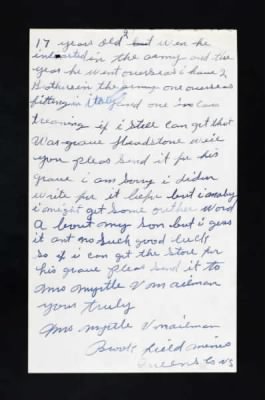 17 years old but wen he
inlested in the army and the
year he went overseas i have 2
Brothers in the army one overseas
fitting in Italy and one in Can
treaning if i still can get that
War grave Headstone wile
you pleas send it for his
grave i am sorry i didin
write for it befor but i maby
i might get some outher word
A bout my son but i gess
it ant no such good luck
so if i can get the stone for
his grave pleas send it to
Mrs Myrtle V mailman
yours truly
Mrs Myrtle V mailman
Brook field mines
Queens Co NS